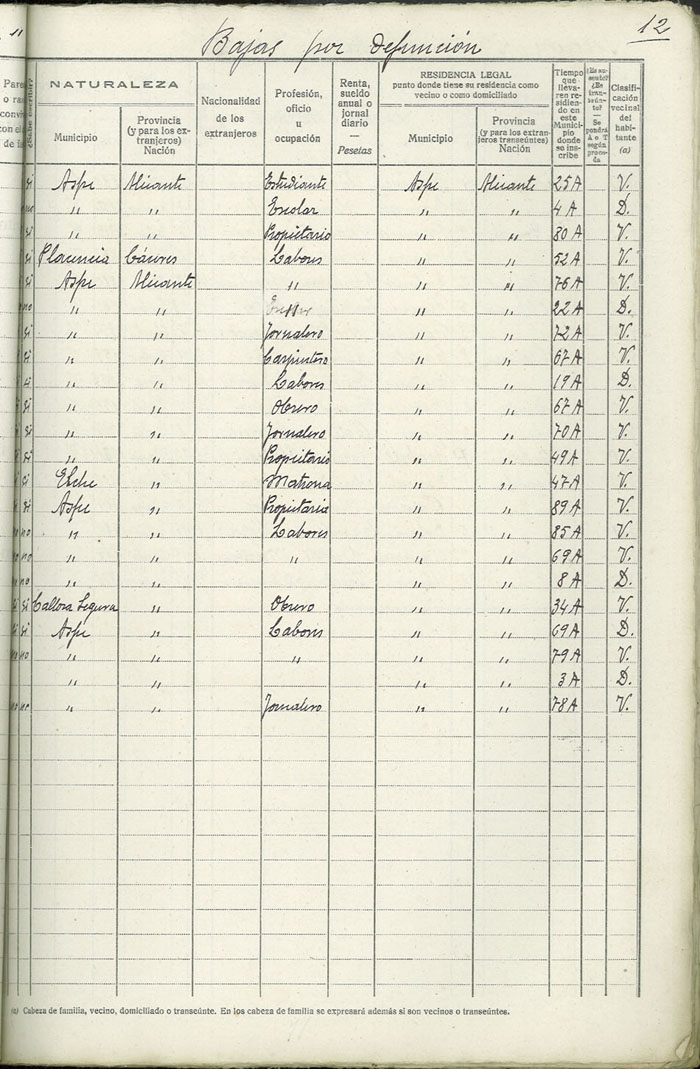 11
12
Bajas por defunción
NATURALEZA
Municipio
Provincia (y para los extranjeros) Nación
Nacionalidad de los extranjeros
Profesión, oficio u ocupación
Renta, sueldo anual o jornal diario — Pesetas
RESIDENCIA LEGAL
punto donde tiene su residencia como vecino o como domiciliado
Municipio
Provincia (y para los extranjeros transeúntes) Nación
Tiempo que llevaren residiendo en este Municipio donde se inscribe
Clasificación vecinal del habitante (a)
si Aspe Alicante Estudiante Aspe Alicante 25 A V.
no " " Escolar " " 4 A D.
si " " Propietario " " 80 A V.
si Plasencia Cáceres Labores " " 52 A V.
si Aspe Alicante " " " 76 A V.
no " " " " " 22 A D.
si " " Jornalero " " 72 A V.
si " " Carpintero " " 67 A V.
si " " Labores " " 19 A D.
si " " Obrero " " 67 A V.
si " " Jornalero " " 70 A V.
si " " Propietario " " 49 A V.
si Elche " Matrona " " 47 A V.
si Aspe " Propietaria " " 89 A V.
no " " Labores " " 85 A V.
no " " " " " 69 A V.
no " " " " 8 A D.
si Callosa Segura " Obrero " " 34 A V.
si Aspe " Labores " " 69 A D.
no " " " " " 79 A V.
" " " " 3 A D.
no " " Jornalero " " 78 A V.
(a) Cabeza de familia, vecino, domiciliado o transeúnte. En los cabeza de familia se expresará además si son vecinos o transeúntes.